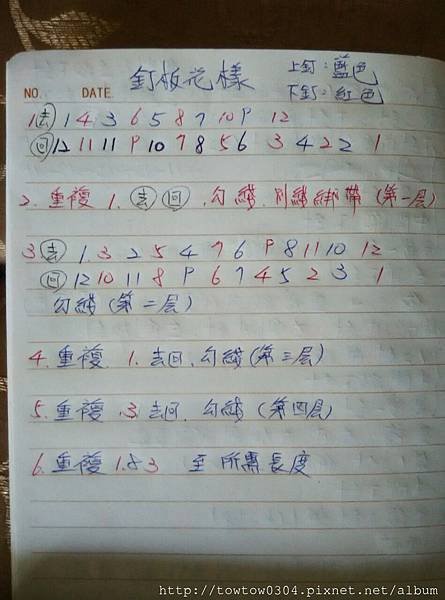 釘板花樣 上釘：藍色
下釘：紅色
NO. DATE
1.去 1 4 3 6 5 8 7 10 9 12
回 12 11 11 9 10 7 8 5 6 3 4 2 2 1
2. 重複 1. 去 回 . 勾綫. 別綫綁帶 (第一层)
3 去 1. 3 2 5 4 7 6 9 8 11 10 12
回 12 10 11 8 9 6 7 4 5 2 3 1
勾綫 (第二层)
4. 重複 1. 去回. 勾綫 (第三层)
5. 重複 . 3. 去回. 勾綫 (第四层)
6. 重複 1. & 3 至 所需長度
http://towtow0304.pixnet.net/album